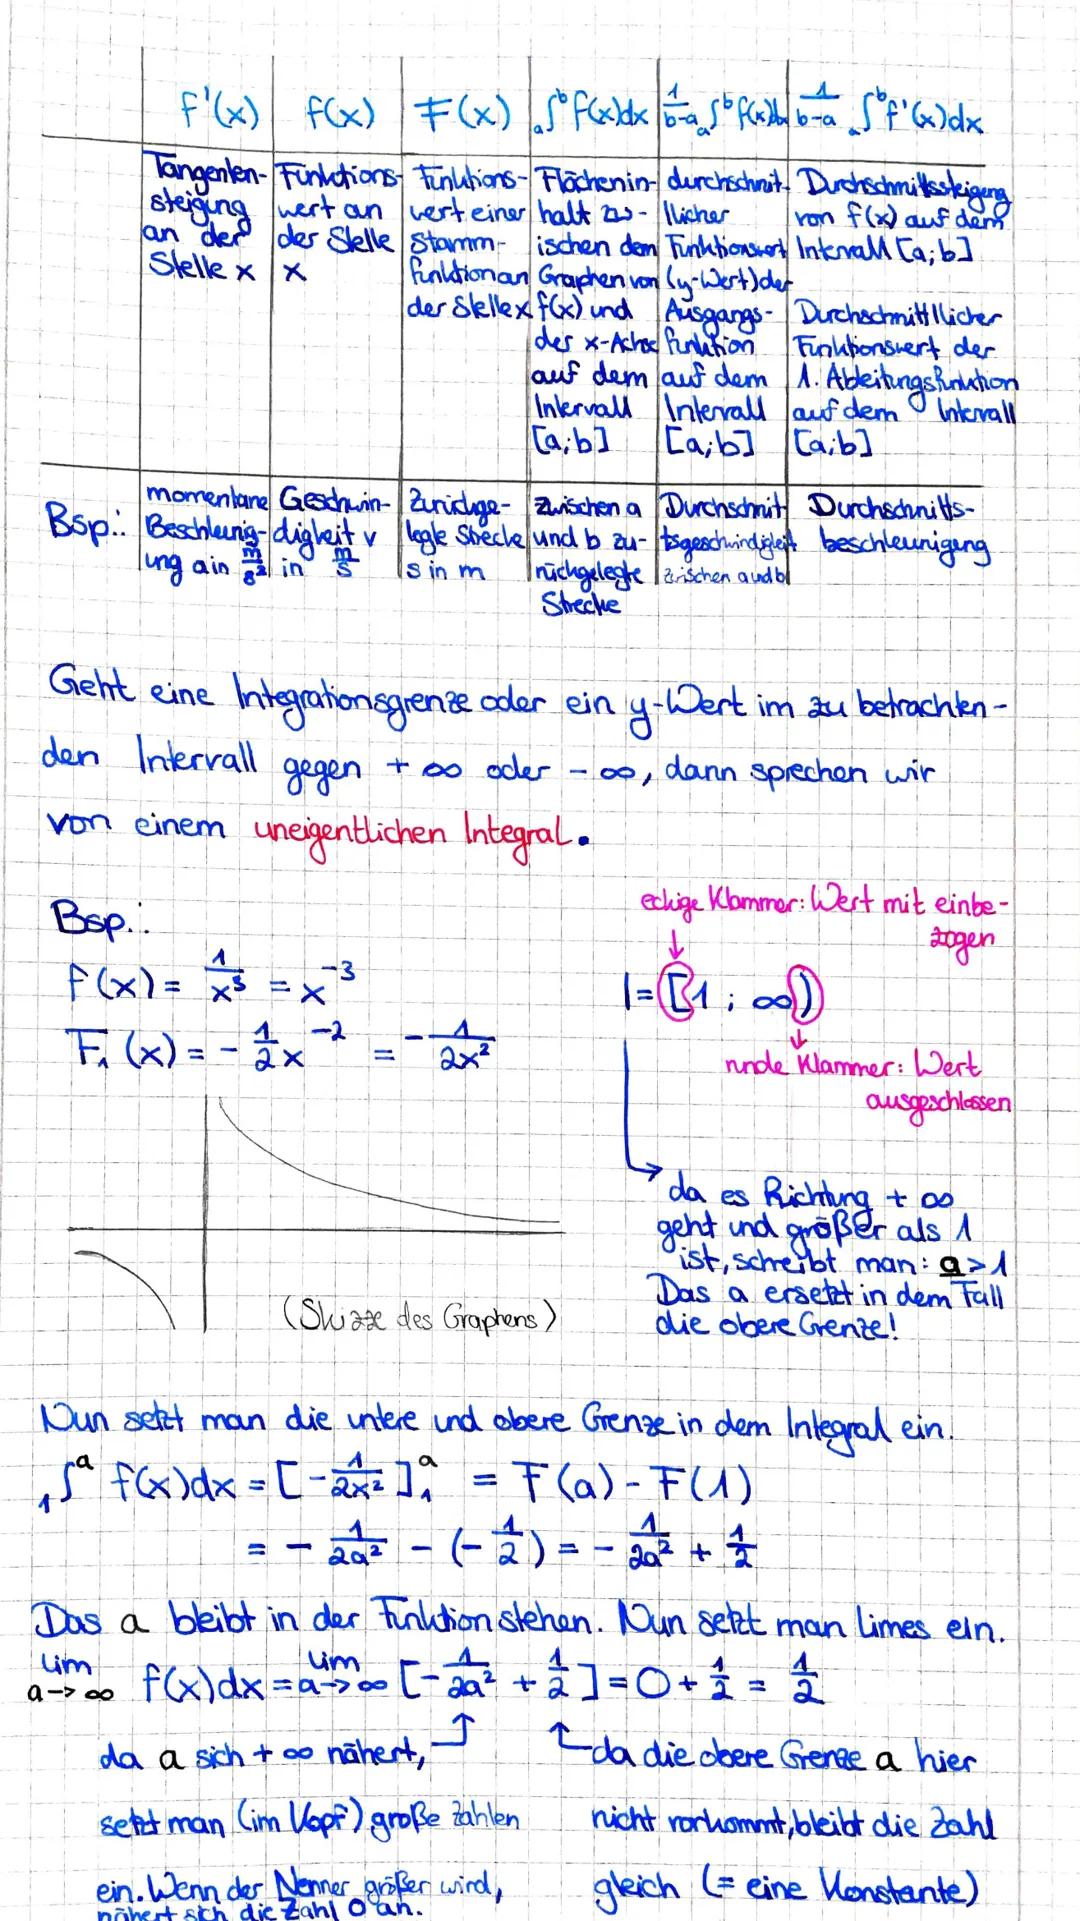 f'(x) f(x) F(x) a∫ᵇ f(x)dx 1/(b-a) a∫ᵇ f(x)dx 1/(b-a) a∫ᵇ f'(x)dx
Tangenten-
steigung
an der
Stelle x
Funktions-
wert an
der Stelle
x
Funktions-
wert einer
Stamm-
funktion an
der Stelle x
Flächenin-
halt zw-
ischen dem
Graphen von
f(x) und
der x-Achse
auf dem
Intervall
[a;b]
durchschnit-
tlicher
Funktionswert
(y-Wert) der
Ausgangs-
funktion
auf dem
Intervall
[a;b]
Durchschnittssteigung
von f(x) auf dem
Intervall [a;b]
Durchschnittlicher
Funktionswert der
1. Ableitungsfunktion
auf dem Intervall
[a;b]
Bsp.:
momentane
Beschleunig-
ung a in m/s²
Geschwin-
digkeit v
in m/s
Zurückge-
legte Strecke
s in m
Zwischen a
und b zu-
rückgelegte
Strecke
Durchschnit
tsgeschwindigkeit
zwischen a und b
Durchschnitts-
beschleunigung
Geht eine Integrationsgrenze oder ein y-Wert im zu betrachten-
den Intervall gegen + ∞ oder - ∞, dann sprechen wir
von einem uneigentlichen Integral.
Bsp.:
f(x) = 1/x³ = x⁻³
F₁(x) = - 1/2 x⁻² = - 1/2x²
eckige Klammer: Wert mit einbe-
zogen
I = [1 ; ∞)
runde Klammer: Wert
ausgeschlossen
da es Richtung + ∞
geht und größer als 1
ist, schreibt man: a > 1
Das a ersetzt in dem Fall
die obere Grenze!
(Skizze des Graphens)
Nun setzt man die untere und obere Grenze in dem Integral ein.
₁∫ᵃ f(x)dx = [- 1/2x²]₁ᵃ = F(a) - F(1)
= - 1/2a² - (- 1/2) = - 1/2a² + 1/2
Das a bleibt in der Funktion stehen. Nun setzt man Limes ein.
lim a->∞ f(x)dx = lim a->∞ [- 1/2a² + 1/2] = 0 + 1/2 = 1/2
da a sich + ∞ nähert,
setzt man (im Kopf) große Zahlen
ein. Wenn der Nenner größer wird,
nähert sich die Zahl 0 an.
da die obere Grenze a hier
nicht vorkommt, bleibt die Zahl
gleich (= eine Konstante)